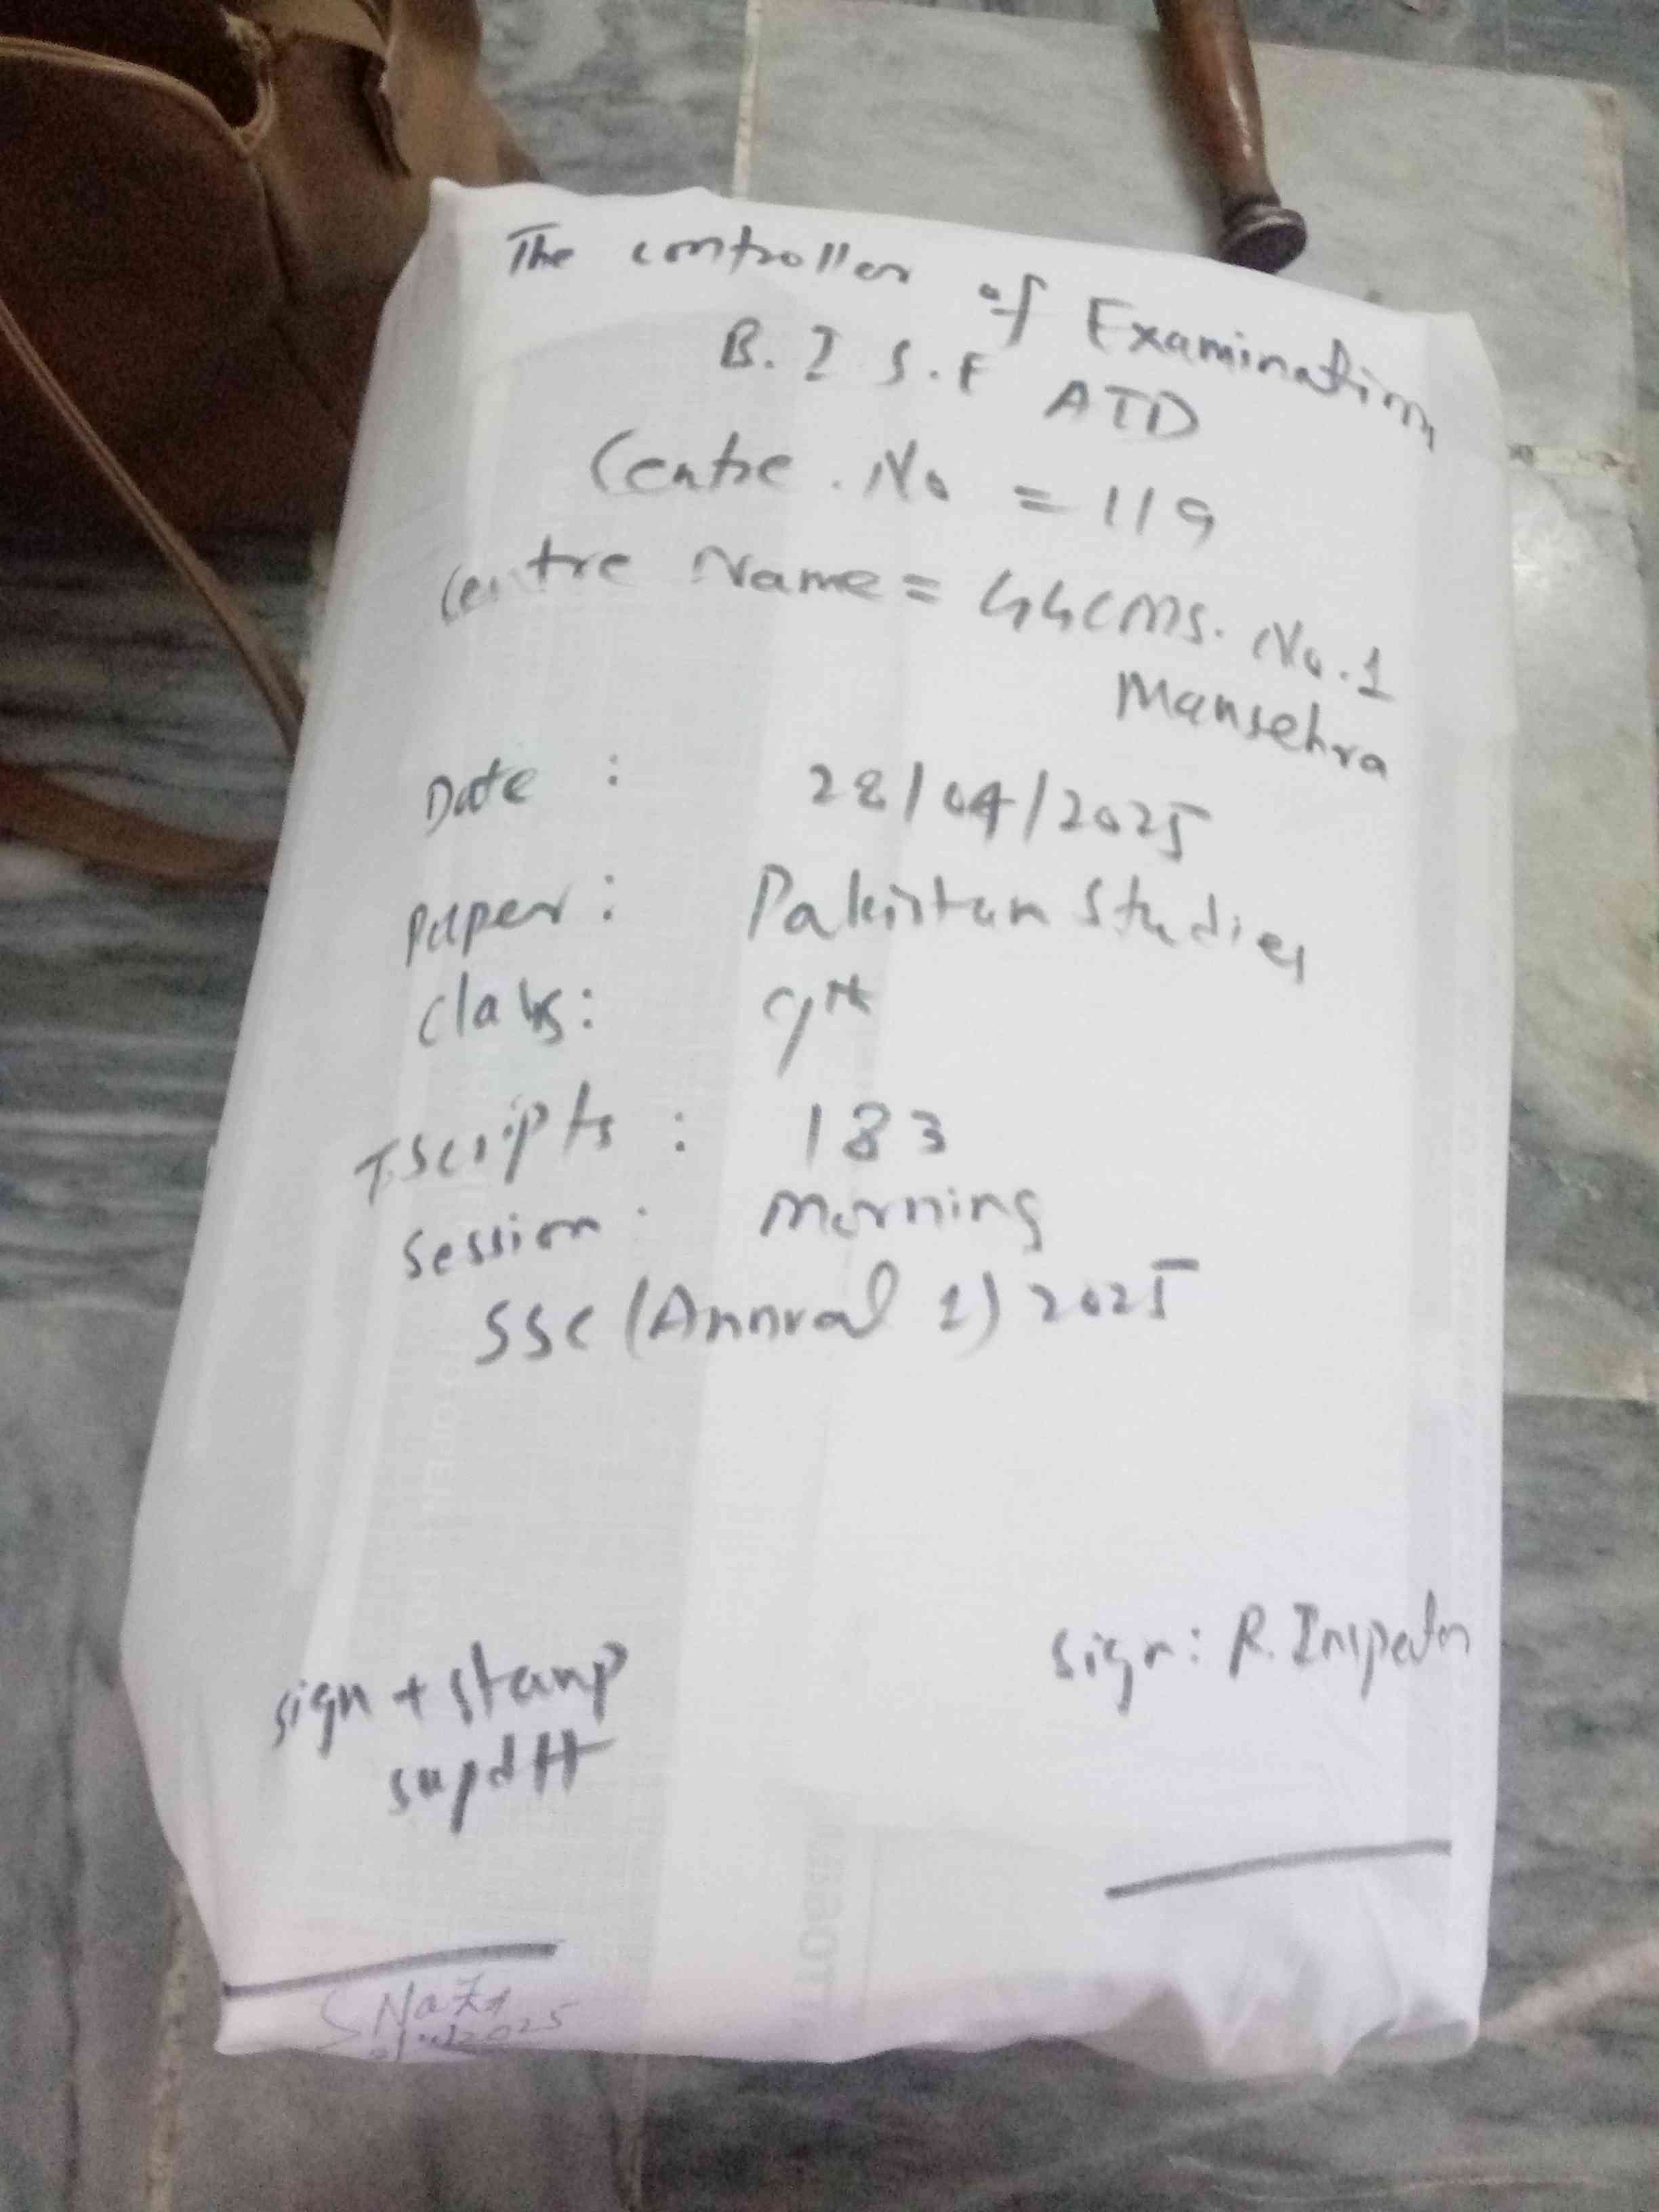 The controller of Examination
B. I S. E ATD
Centre. No = 119
Centre Name = GGCMS. No. 1
Mansehra
Date : 28/04/2025
paper : Pakistan Studies
class : 9th
T.Scripts : 183
Session : Morning
SSC (Annual 1) 2025
sign: R. Inspector
sign + stamp
supdtt